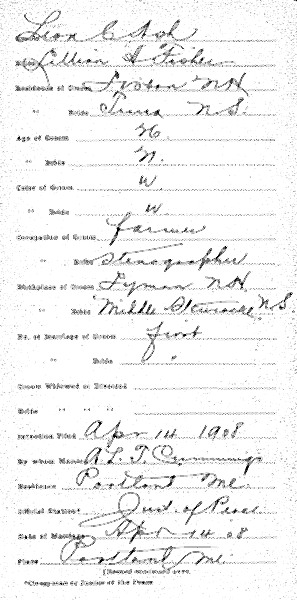 Groom Leon C Ash
Bride Lillian A Fisher
Residence of Groom Lisbon NH
" Bride Truro N.S.
Age of Groom
" Bride
Color of Groom W
" Bride W.
Occupation of Groom farmer
" Bride Stenographer
Birthplace of Groom Lyman NH
" Bride Middle N.S.
No. of Marriage of Groom first
" Bride "
Groom Widowed or Divorced
Bride " " "
Intention Filed Apr 14 1908
By whom Married A. L. T. Cummings
Residence Portland Me.
Official Station* Just. of Peace
Date of Marriage Apr 14 08
Place Portland Me.
*Clergyman or Justice of the Peace